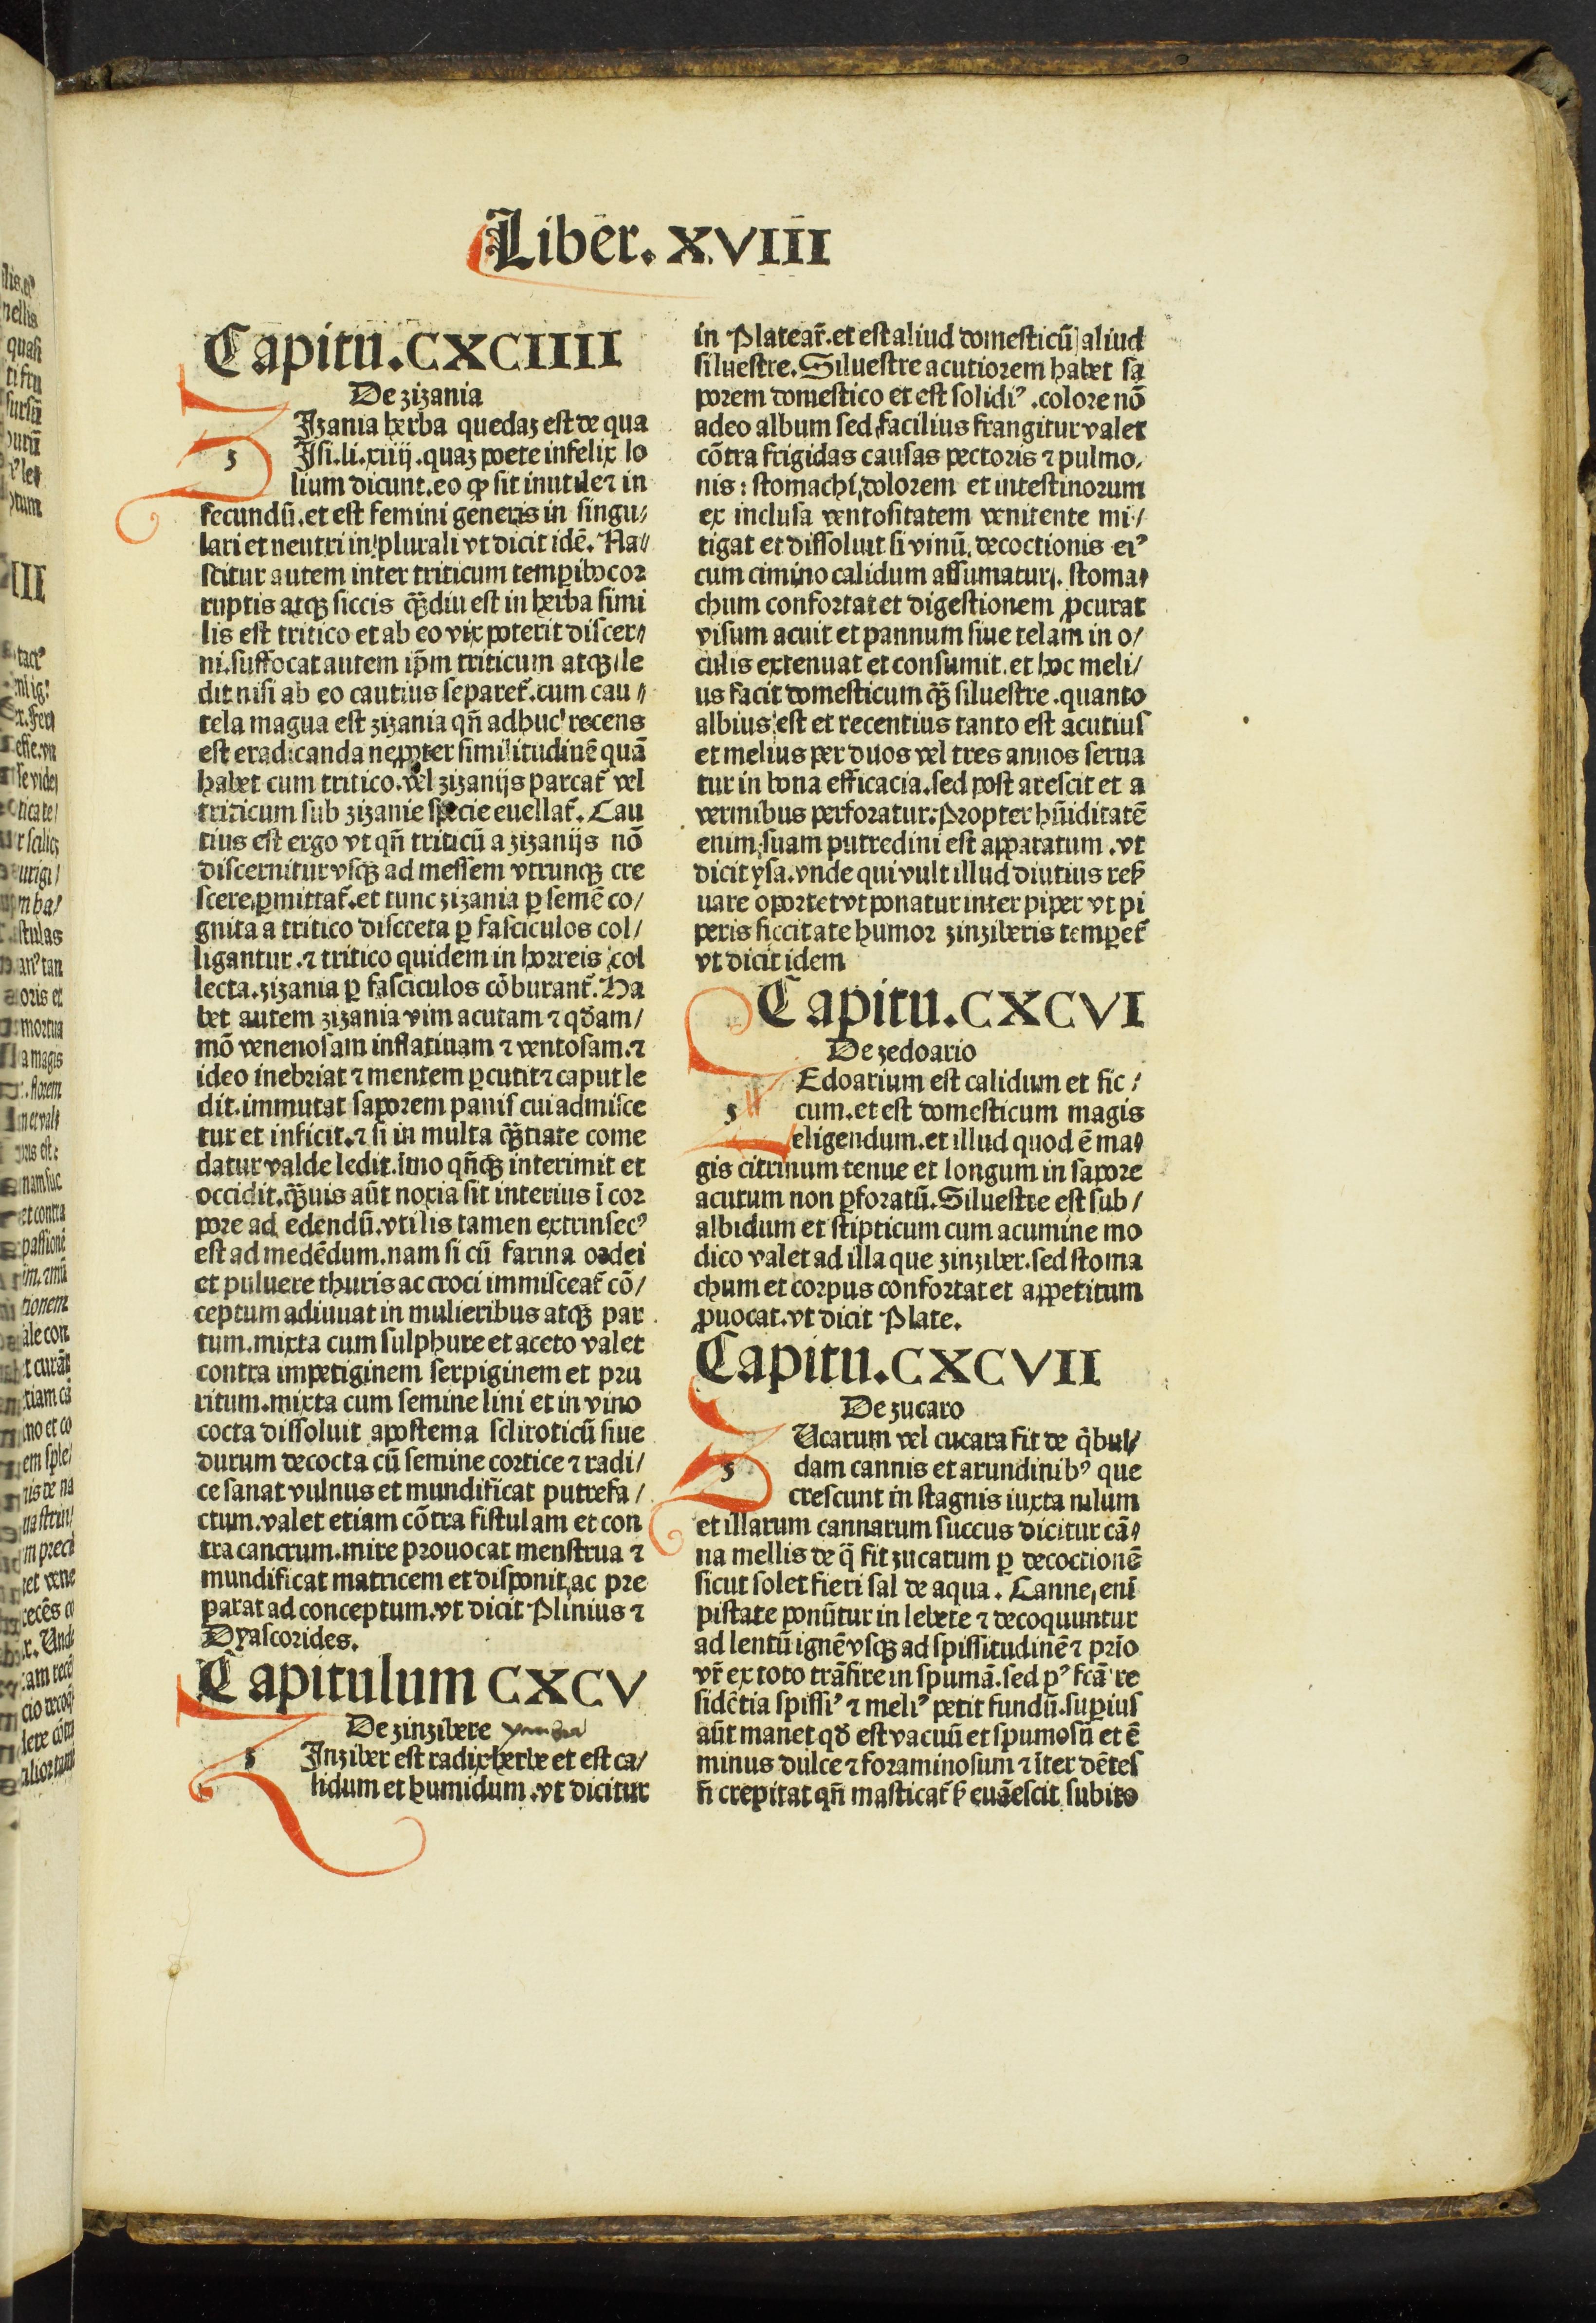 Liber. XVIII
Capitu. CXCIIII
De zizania
ZIzania herba quedaz est de qua
Isi. li. xiiij. quaz poete infelix lo
lium dicunt. eo ꝙ sit inutile ⁊ in
fecundū. et est femini generis in singu/
lari et neutri in plurali vt dicit idē. Na/
scitur autem inter triticum temꝑibꝰ cor
ruptis atqꝫ siccis qꝫ̄diu est in herba simi
lis est tritico et ab eo vix poterit discer/
ni. suffocat autem ip̄m triticum atqꝫ le
dit nisi ab eo cautius separet᷑. cum cau/
tela magua est zizania qn̄ adhuc recens
est eradicanda ne ꝓpter similitudinē quā
habet cum tritico. vel zizanijs parcat᷑ vel
triticum sub zizanie specie euellat᷑. Cau
tius est ergo vt qn̄ triticū a zizanijs nō
discernitur vsqꝫ ad messem vtrunqꝫ cre
scere ꝑmittat᷑. et tunc zizania ꝑ semē co/
gnita a tritico discreta ꝑ fasciculos col/
ligantur. ⁊ tritico quidem in horreis col
lecta. zizania ꝑ fasciculos cōburant᷑. Ha
bet autem zizania vim acutam ⁊ qd̄am/
mō venenosam inflatiuam ⁊ ventosam. ⁊
ideo inebriat ⁊ mentem ꝑcutit ⁊ caput le
dit. immutat saporem panis cui admisce
tur et inficit. ⁊ si in multa qꝫ̄titate come
datur valde ledit. imo qn̄qꝫ interimit et
occidit. qꝫ̄uis aūt noxia sit interius ī cor
pore ad edendū. vtilis tamen extrinsecꝰ
est ad medēdum. nam si cū farina ordei
et puluere thuris ac croci immisceat᷑ cō/
ceptum adiuuat in mulieribus atqꝫ par
tum. mixta cum sulphure et aceto valet
contra impetiginem serpiginem et pru
ritum. mixta cum semine lini et in vino
cocta dissoluit apostema scliroticū siue
durum decocta cū semine cortice ⁊ radi/
ce sanat vulnus et mundificat putrefa/
ctum. valet etiam cōtra fistulam et con
tra cancrum. mire prouocat menstrua ⁊
mundificat matricem et disponit ac pre
parat ad conceptum. vt dicit Plinius ⁊
Dyascorides.
Capitulum CXCV
De zinzibere
ZInziber est radix herbe et est ca/
lidum et humidum. vt dicitur
in Platear᷑. et est aliud domesticū aliud
siluestre. Siluestre acutiorem habet sa
porem domestico et est solidiꝰ. colore nō
adeo album sed facilius frangitur valet
cōtra frigidas causas pectoris ⁊ pulmo/
nis: stomachi, dolorem et intestinorum
ex inclusa ventositatem venitente mi/
tigat et dissoluit si vinū. decoctionis eiꝰ
cum cimino calidum assumatur. stoma/
chum confortat et digestionem ꝓcurat
visum acuit et pannum siue telam in o/
culis extenuat et consumit. et hoc meli/
us facit domesticum qꝫ̄ siluestre. quanto
albius est et recentius tanto est acutius
et melius per duos vel tres annos serua
tur in bona efficacia. sed post arescit et a
vermibus perforatur: Propter hūiditatē
enim suam putredini est apparatum. vt
dicit ysa. vnde qui vult illud diutius res̄
uare oportet vt ponatur inter piper vt pi
peris siccitate humor zinziberis temperet᷑
vt dicit idem
Capitu. CXCVI
De zedoario
ZEdoarium est calidum et sic/
cum. et est domesticum magis
eligendum. et illud quod ē ma/
gis citrinum tenue et longum in sapore
acutum non ꝑforatū. Siluestre est sub/
albidum et stipticum cum acumine mo
dico valet ad illa que zinziber. sed stoma
chum et corpus confortat et appetitum
ꝓuocat. vt dicit Plate.
Capitu. CXCVII
De zucaro
ZUcarum vel cucara fit de q̄bus/
dam cannis et arundinibꝰ que
crescunt in stagnis iuxta nilum
et illarum cannarum succus dicitur cā/
na mellis de q̄ fit zucarum ꝑ decoctionē
sicut solet fieri sal de aqua. Canne, enī
pistate ponūtur in lebete ⁊ decoquuntur
ad lentū ignē vsqꝫ ad spissitudinē ⁊ prīo
vr̄ ex toto trāsire in spumā. sed pꝰ fcā re
sidētia spissiꝰ ⁊ meliꝰ petit fundū. suꝑius
aūt manet qd̄ est vacuū et spumosū et ē
minus dulce ⁊ foraminosum ⁊ īter dētes
n̄ crepitat qn̄ masticat᷑ s̄ euāescit subito